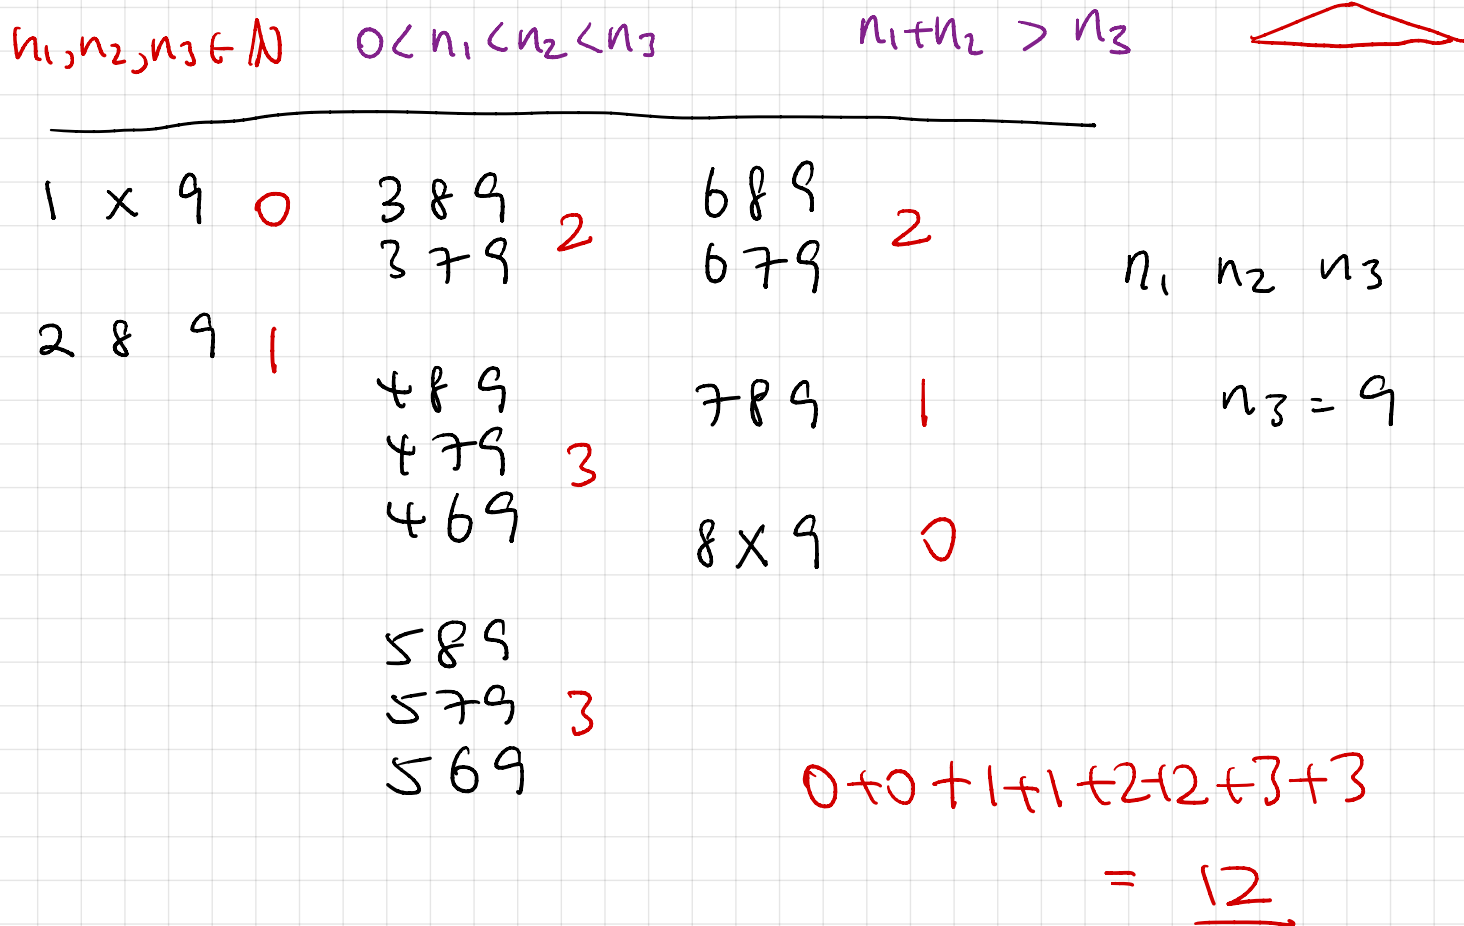 n₁,n₂,n₃ ∈ ℕ 0<n₁<n₂<n₃ n₁+n₂ > n₃
1 x 9 0
2 8 9 1
3 8 9
3 7 9 2
4 8 9
4 7 9 3
4 6 9
5 8 9
5 7 9 3
5 6 9
6 8 9
6 7 9 2
7 8 9 1
8 x 9 0
n₁ n₂ n₃
n₃ = 9
0+0+1+1+2+2+3+3
= 12